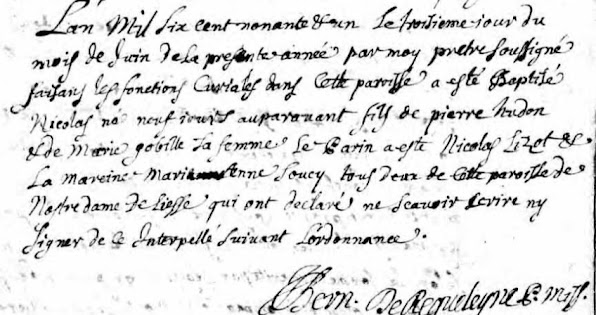 Lan Mil Six cent nonante & un Le troisieme jour du
mois de Juin de la presente année par moy pretre soussigné
faisans les fonctions Curiales dans Cette paroisse a esté Baptisé
Nicolas né neuf jours auparavant fils de pierre hudon
& de Marie gobille sa femme Le Parin a esté Nicolas Lizot &
La mareine Marie Anne Soucy tous deux de Cette paroisse de
Nostre dame de Liesse qui ont declaré ne scavoir Ecrire ny
signer de ce Interpellé suivant Lordonnance.
Bern. De Requeleyne P. Miss.